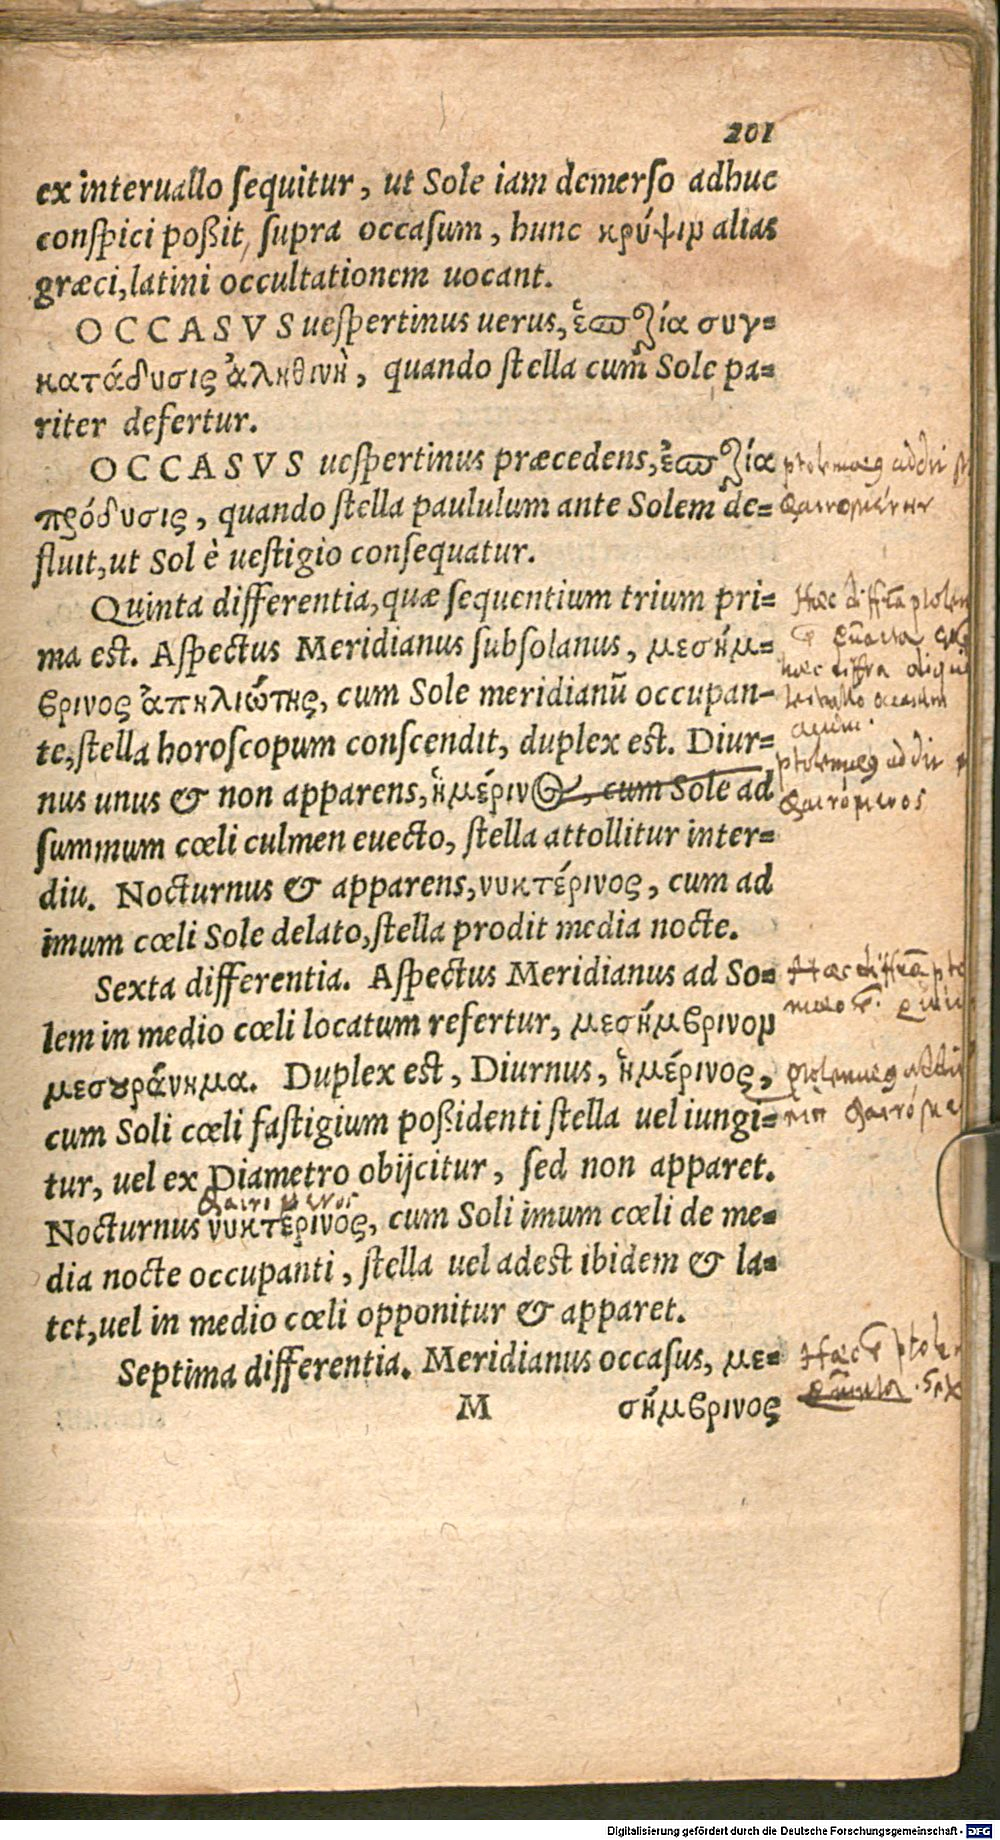 201
ex interuallo sequitur, ut Sole iam demerso adhuc
conspici poßit, supra occasum, hunc κρύψιμ alias
græci, latini occultationem uocant.
OCCASVS uespertinus uerus, ἑσπερία συγ=
κατάδυσις ἀληθινὴ, quando stella cum Sole pa=
riter defertur.
OCCASVS uespertinus præcedens, ἑσπερία
πρόδυσις, quando stella paululum ante Solem de=
fluit, ut Sol è uestigio consequatur.
Quinta differentia, quæ sequentium trium pri=
ma est. Aspectus Meridianus subsolanus, μεσήμ=
βρινος ἀπηλιώτης, cum Sole meridianū occupan=
te, stella horoscopum conscendit, duplex est. Diur=
nus unus & non apparens, ἡμέρινος, cum Sole ad
summum cœli culmen euecto, stella attollitur inter=
diu. Nocturnus & apparens, νυκτέρινος, cum ad
imum cœli Sole delato, stella prodit media nocte.
Sexta differentia. Aspectus Meridianus ad So=
lem in medio cœli locatum refertur, μεσήμβρινομ
μεσουράνημα. Duplex est, Diurnus, ἡμέρινος,
cum Soli cœli fastigium poßidenti stella uel iungi=
tur, uel ex Diametro obijcitur, sed non apparet.
φαινόμενος
Nocturnus νυκτέρινος, cum Soli imum cœli de me=
dia nocte occupanti, stella uel adest ibidem & la=
tet, uel in medio cœli opponitur & apparet.
Septima differentia. Meridianus occasus, με=
M σήμβρινος
ptolemaeus addit
φαινομένην
Haec diffīa
quinta
haec diffra
occasum
ptolemaeus addit
φαινόμενος
Haec diffīa
ptolemaeus addit
Haec
quinta. Sex
Digitalisierung gefördert durch die Deutsche Forschungsgemeinschaft - DFG